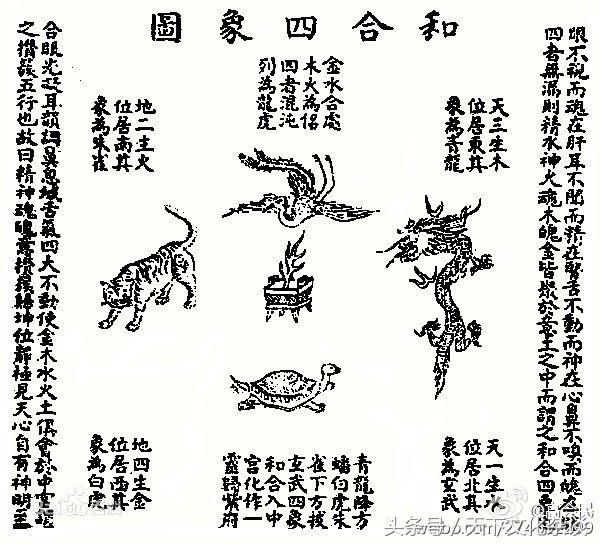 和合四象圖
眼不視而魂在肝耳不聞而精在腎舌不動而神在心鼻不嗅而魄在
四者無漏則精水神火魂木魄金皆聚於意土之中而謂之和合四象
天三生木
位居東其
象為青龍
金水合處
木火為侶
四者混沌
列為龍虎
地二生火
位居南其
象為朱雀
天一生水
位居北其
象為玄武
青龍降方
蟠白虎朱
雀下方投
玄武四象
和合入中
宮化作一
靈歸紫府
地四生金
位居西其
象為白虎
合眼光凝耳韻調鼻息緘舌氣四大不動使金木水火土俱會於中宮謂
之攢簇五行也故曰精神魂魄意攢簇歸坤位靜極見天心自有神明至